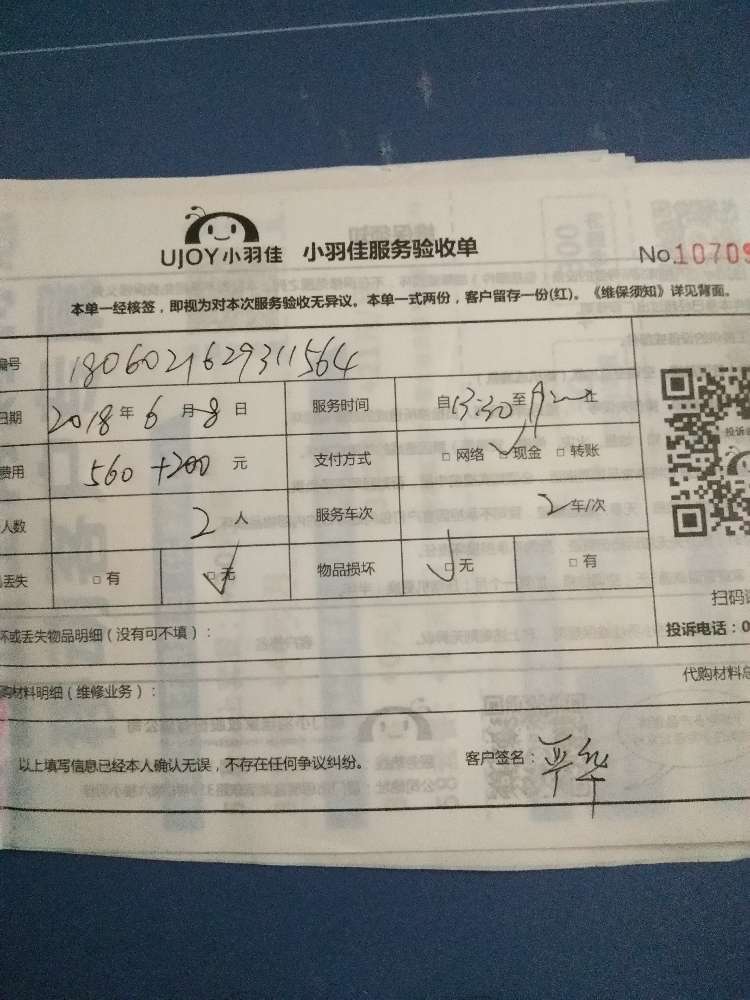 UJOY小羽佳 小羽佳服务验收单 No.10709
本单一经核签，即视为对本次服务验收无异议。本单一式两份，客户留存一份(红)。《维保须知》详见背面。
编号 1806021629311564
日期 2018年6月8日 服务时间 自13:30至
费用 560+200元 支付方式 □网络 □现金 □转账
人数 2人 服务车次 2车/次
丢失 □有 □无 物品损坏 □无 □有
投诉
扫码
坏或丢失物品明细（没有可不填）： 投诉电话：0
购材料明细（维修业务）： 代购材料总
以上填写信息已经本人确认无误，不存在任何争议纠纷。 客户签名：严华